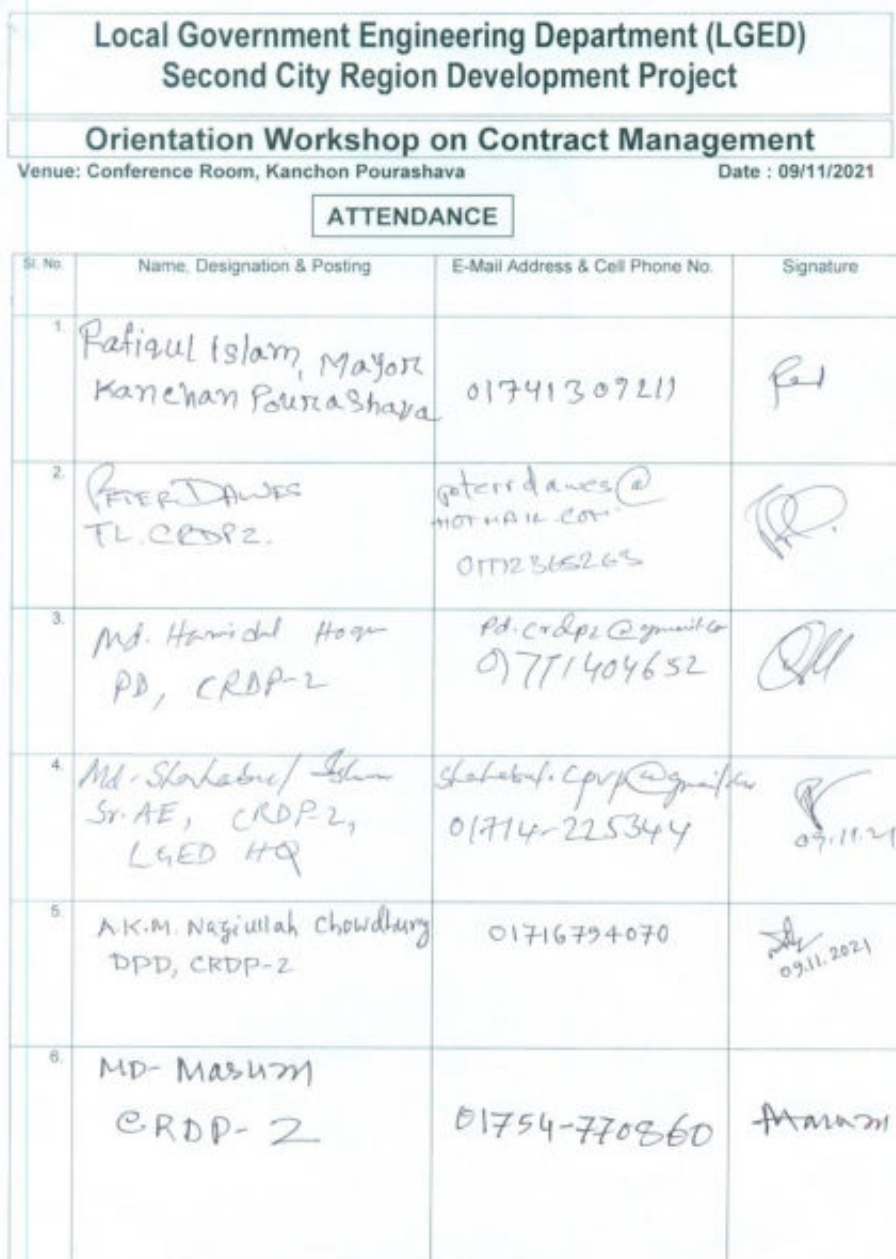 Local Government Engineering Department (LGED)
Second City Region Development Project
Orientation Workshop on Contract Management
Venue: Conference Room, Kanchon Pourashava Date : 09/11/2021
ATTENDANCE
Sl. No. Name, Designation & Posting E-Mail Address & Cell Phone No. Signature
1. Rafiqul Islam, Mayor
Kanchan Pourashava 01741309211
2. PETER DAWES peterrdawes@
TL. CRDP2. HOTMAIL.COM
01712365263
3. Md. Hamidul Hoque pd.crdp2@gmail.co
PD, CRDP-2 01711404652
4. Md. Shahabul Islam
Sr. AE, CRDP-2, 01714-225344
LGED HQ 09.11.21
5. A.K.M. Naziullah Chowdhury 01716794070
DPD, CRDP-2 09.11.2021
6. MD- Masum
CRDP-2 01754-770860 Masum